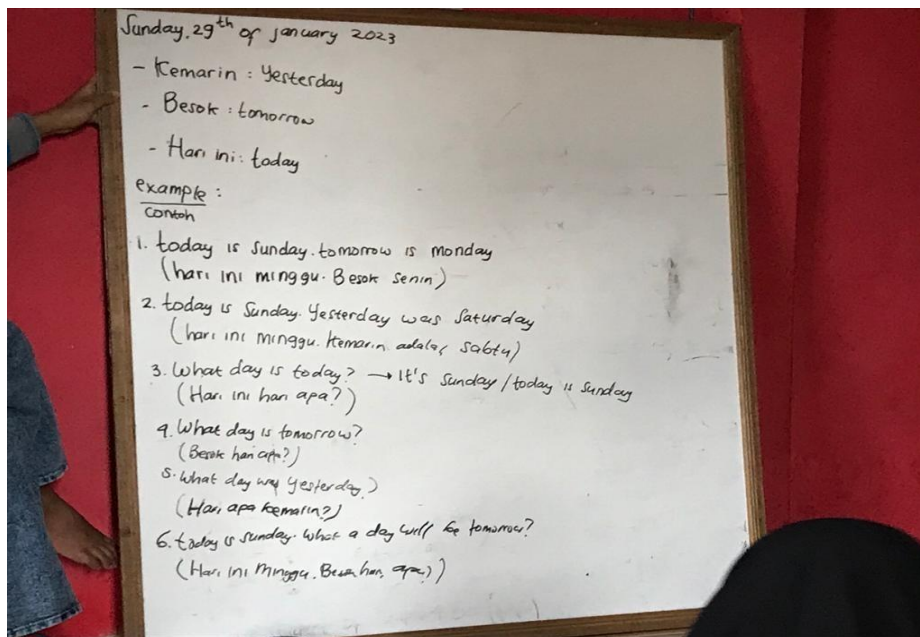 Sunday, 29th of january 2023
- Kemarin : Yesterday
- Besok : tomorrow
- Hari ini : today
example :
contoh
1. today is Sunday. tomorrow is monday
(hari ini minggu. Besok senin)
2. today is Sunday. Yesterday was Saturday
(hari ini minggu. Kemarin adalah sabtu)
3. What day is today? → It's Sunday / today is Sunday
(Hari ini hari apa?)
4. What day is tomorrow?
(Besok hari apa?)
5. What day was yesterday?
(Hari apa kemarin?)
6. today is sunday. What a day will be tomorrow?
(Hari ini Minggu. Besok hari apa?)